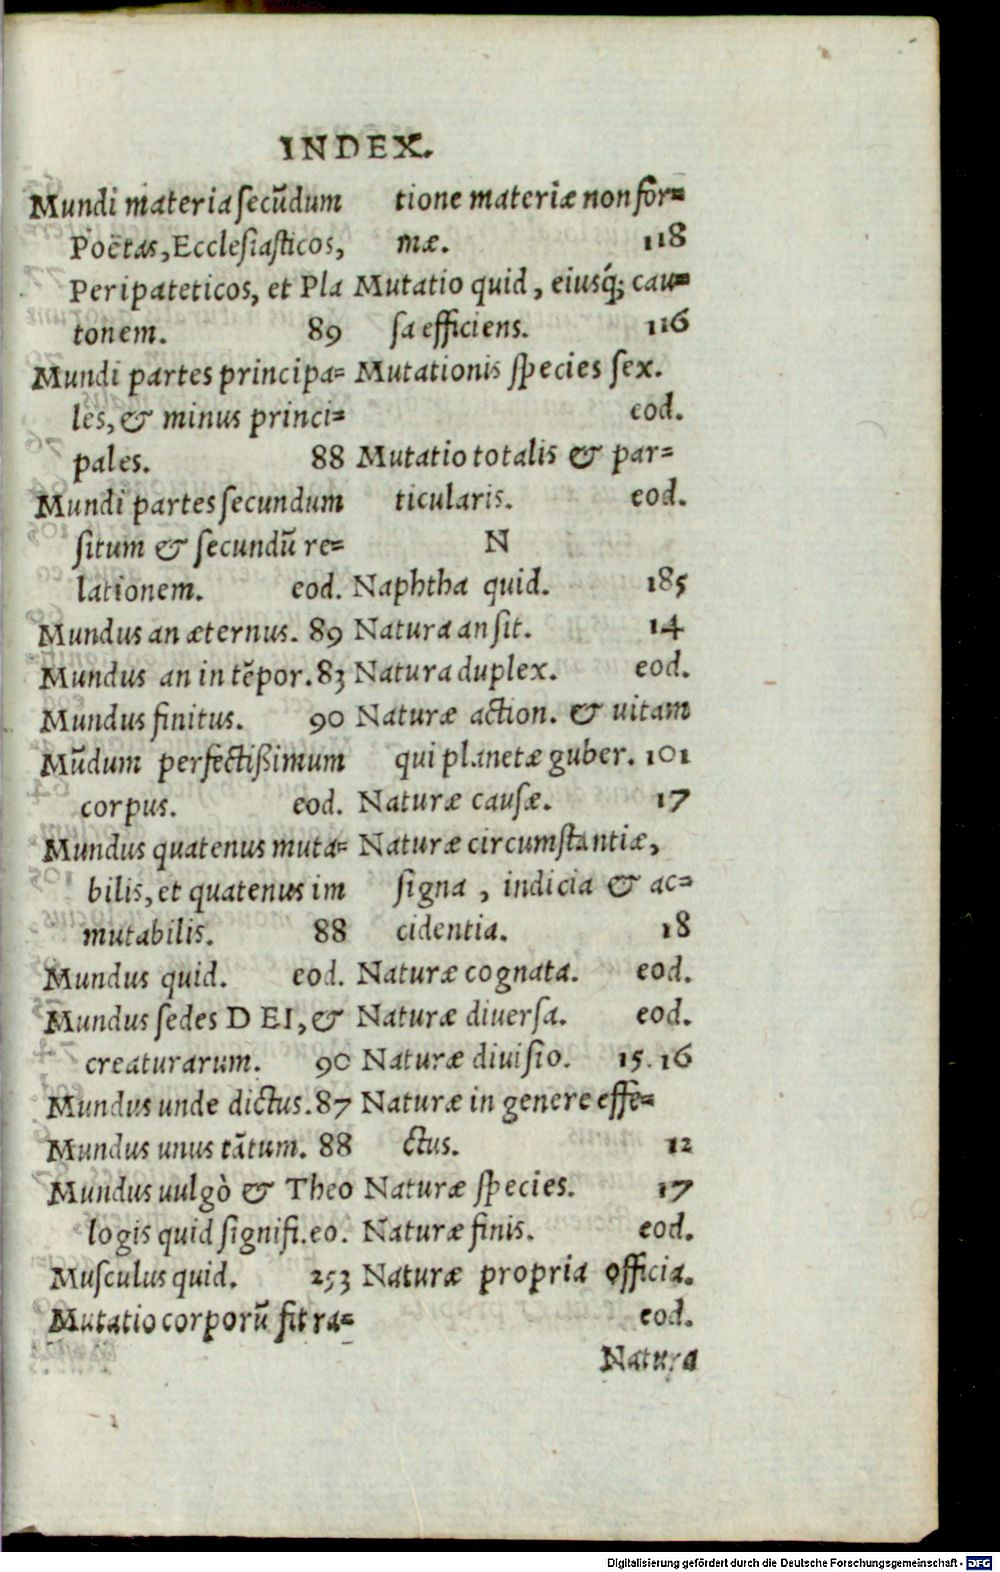 INDEX.
Mundi materia secũdum
Poëtas, Ecclesiasticos,
Peripateticos, et Pla
tonem. 89
Mundi partes principa=
les, & minus princi=
pales. 88
Mundi partes secundum
situm & secundũ re=
lationem. eod.
Mundus an æternus. 89
Mundus an in tẽpor. 83
Mundus finitus. 90
Mũdum perfectißimum
corpus. eod.
Mundus quatenus muta=
bilis, et quatenus im
mutabilis. 88
Mundus quid. eod.
Mundus sedes DEI, &
creaturarum. 90
Mundus unde dictus. 87
Mundus unus tãtum. 88
Mundus uulgò & Theo
logis quid signifi. eo.
Musculus quid. 253
Mutatio corporũ fit ra=
tione materiæ non for=
mæ. 118
Mutatio quid, eiusq́; cau=
sa efficiens. 116
Mutationis species sex.
eod.
Mutatio totalis & par=
ticularis. eod.
N
Naphtha quid. 185
Natura an sit. 14
Natura duplex. eod.
Naturæ action. & uitam
qui planetæ guber. 101
Naturæ causæ. 17
Naturæ circumstantiæ,
signa, indicia & ac=
cidentia. 18
Naturæ cognata. eod.
Naturæ diuersa. eod.
Naturæ diuisio. 15. 16
Naturæ in genere effe=
ctus. 12
Naturæ species. 17
Naturæ finis. eod.
Naturæ propria officia.
eod.
Natura
Digitalisierung gefördert durch die Deutsche Forschungsgemeinschaft - DFG